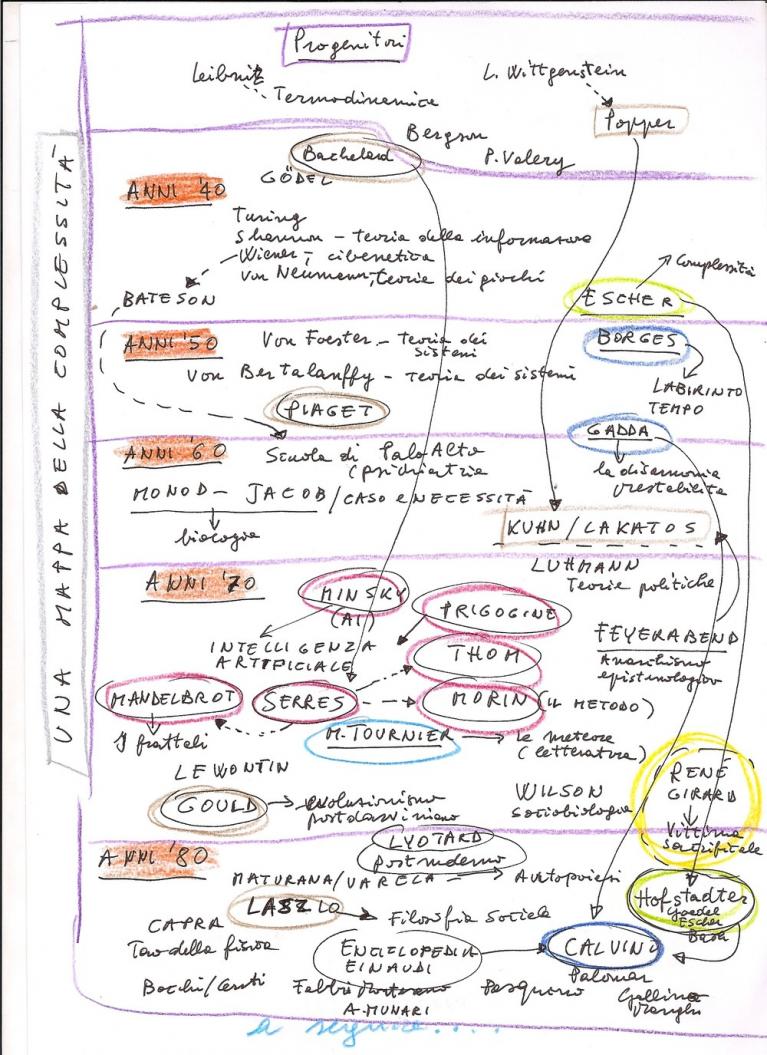 UNA MAPPA DELLA COMPLESSITÀ
Progenitori
Leibnitz
L. Wittgenstein
Termodinamica
Popper
Bergson
Bachelard
P. Valery
GÖDEL
ANNI '40
Turing
Shannon - teoria della
Wiener, cibenetica
Von Neumann, teorie dei giochi
Complessità
BATESON
ESCHER
ANNI '50
Von Foester - teoria dei
sistemi
BORGES
Von Bertalanffy - teoria dei sistemi
LABIRINTO
TEMPO
PIAGET
GADDA
ANNI '60
Scuola di Palo Alto
(psichiatria
la disarmonia
prestabilita
MONOD - JACOB / CASO e NECESSITÀ
biologia
KUHN / LAKATOS
LUHMANN
Teorie politiche
ANNI '70
MINSKY
(AI)
PRIGOGINE
INTELLIGENZA
ARTIFICIALE
THOM
FEYERABEND
Anarchismo
epistemologico
MANDELBROT
SERRES
MORIN (IL METODO)
I frattali
M. TOURNIER
le meteore
(letteratura)
LEWONTIN
RENÉ
GIRARD
GOULD
evoluzionismo
postdarwiniano
WILSON
sociobiologia
Vittima
sacrificale
ANNI '80
LYOTARD
postmoderno
MATURANA/VARELA
Autopoiesi
Hofstadter
Goedel
Escher
Bach
LASZLO
Filosofia Sociale
CAPRA
Tao della fisica
ENCICLOPEDIA
EINAUDI
CALVINO
Palomar
Bocchi/Ceruti
Fabbri
A. MUNARI
a seguire....